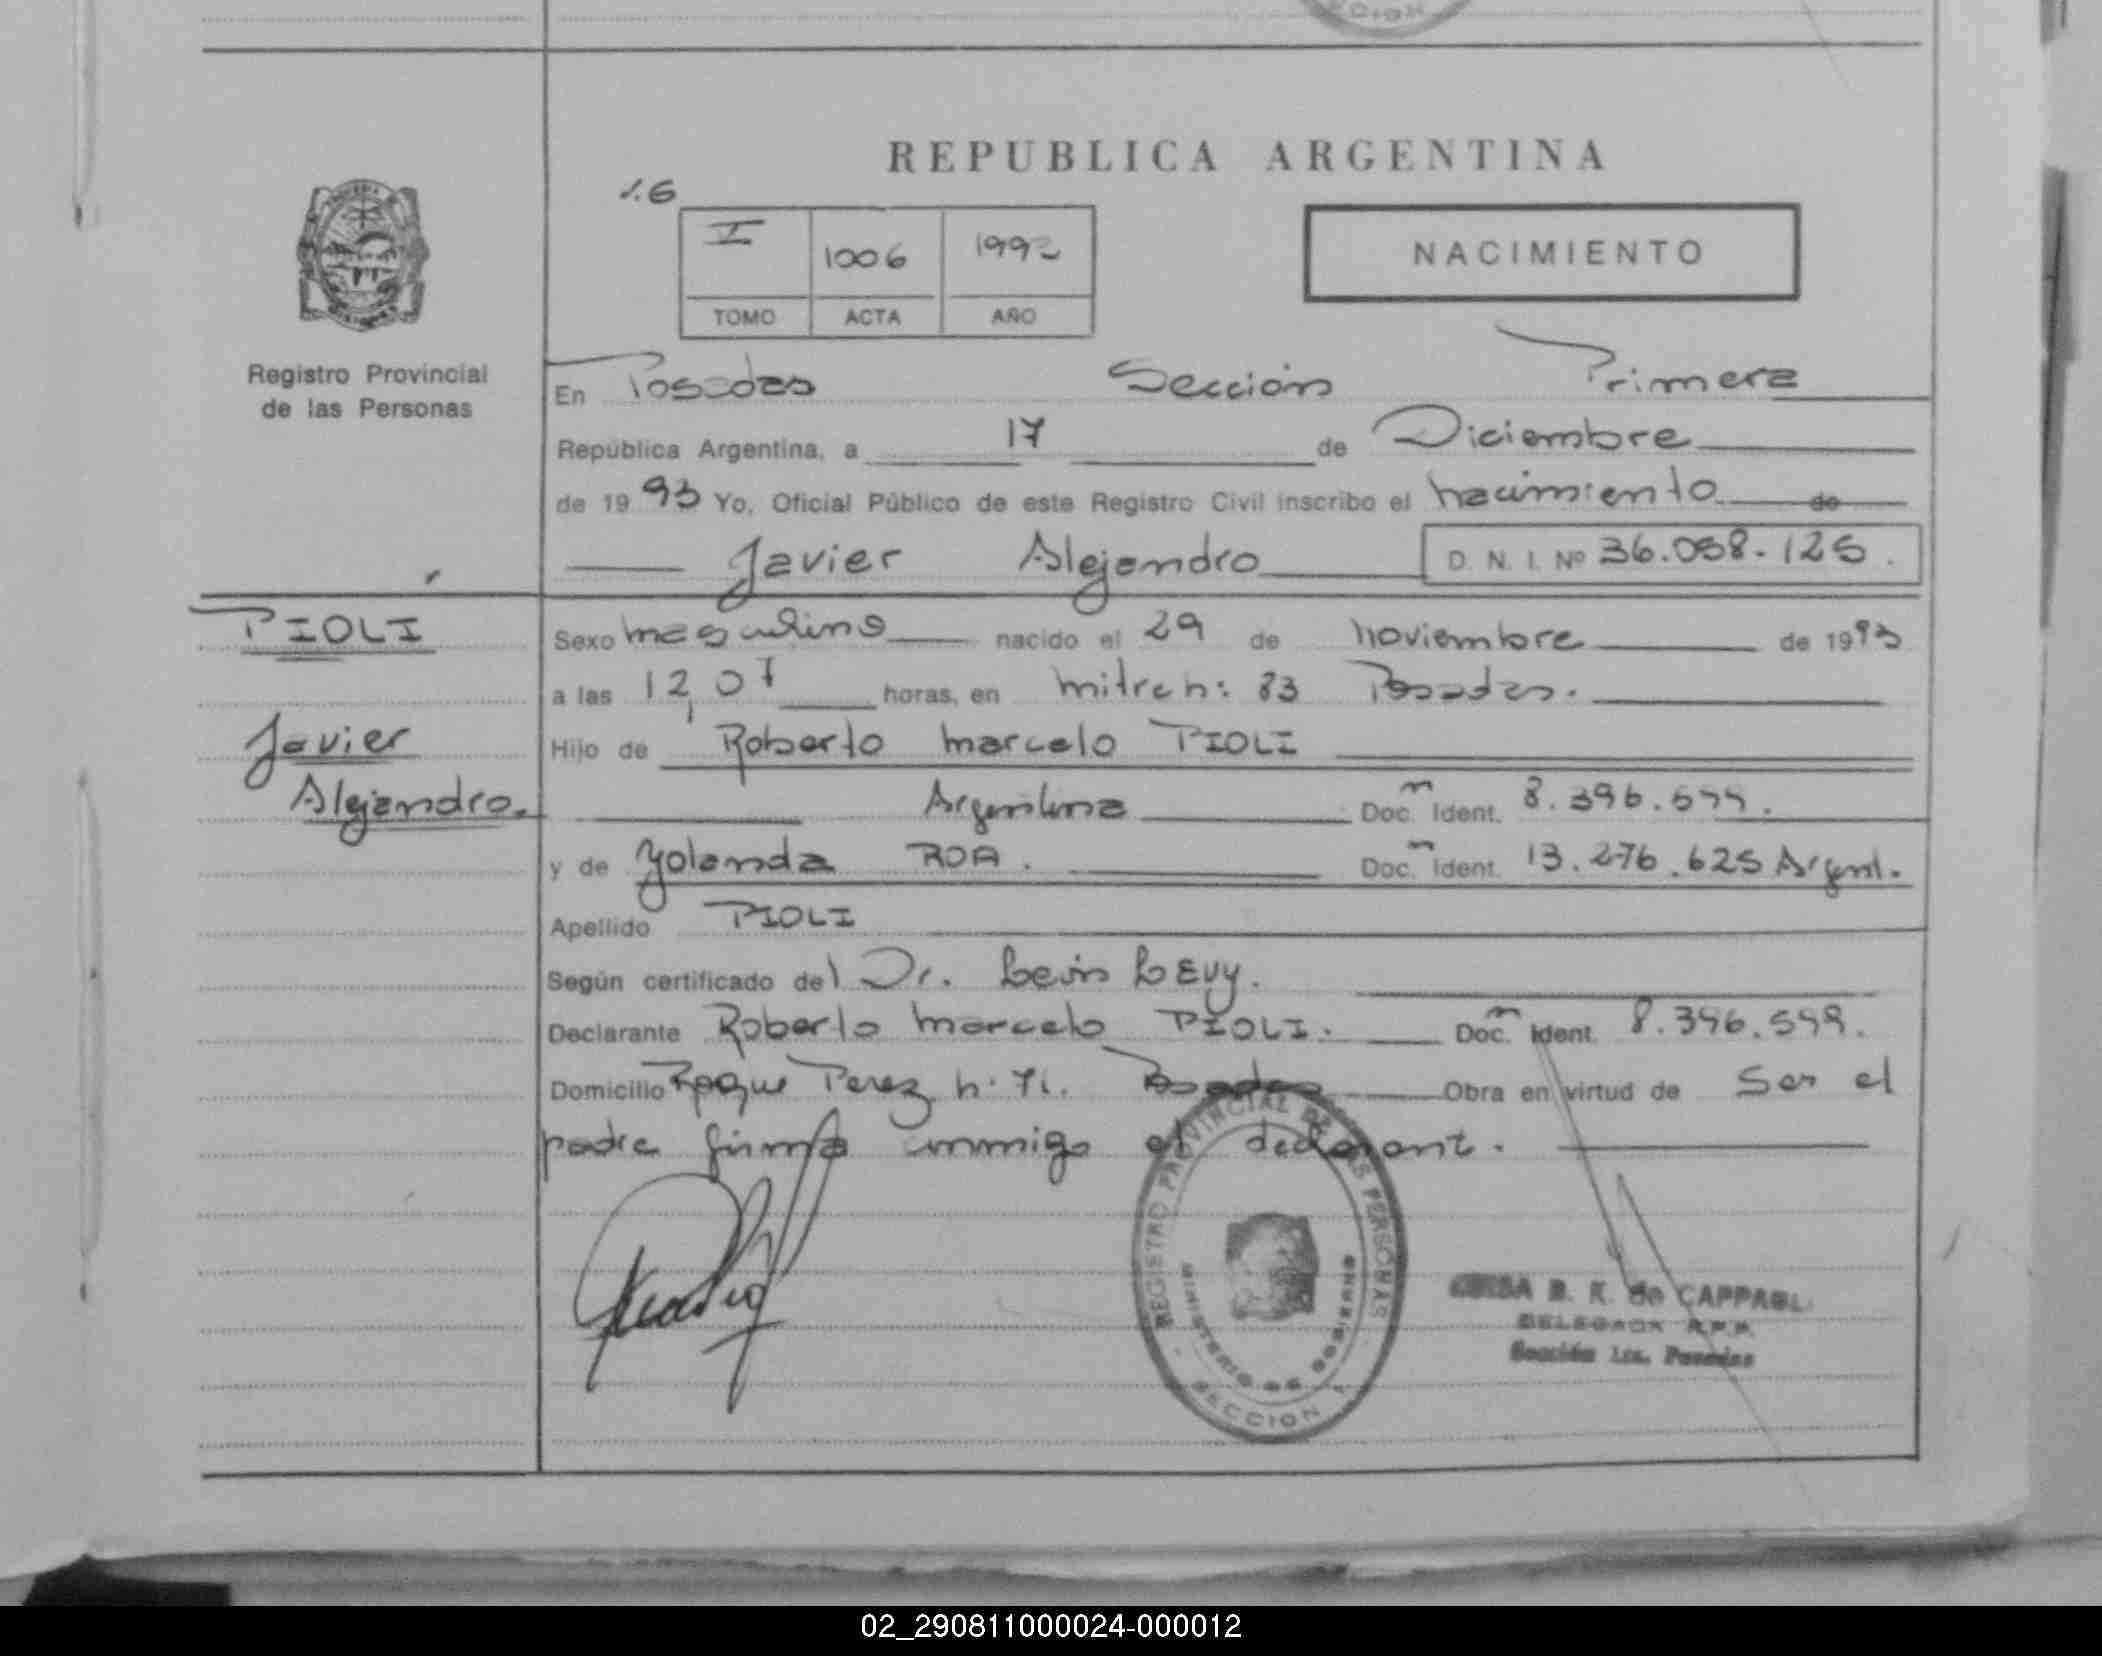 REPUBLICA ARGENTINA
1006 1993
TOMO ACTA AÑO
NACIMIENTO
Registro Provincial
de las Personas
En Posadas Sección Primera
República Argentina, a 17 de Diciembre
de 1993 Yo, Oficial Público de este Registro Civil inscribo el nacimiento de
Javier Alejandro D. N. I. Nº 36.058.125.
PIOLI
Javier
Alejandro.
Sexo masculino nacido el 29 de noviembre de 1993
a las 12,07 horas, en mitre n: 83 Posadas.
Hijo de Roberto marcelo PIOLI
Argentina Doc. Ident. 8.396.599.
y de Yolanda ROA. Doc. Ident. 13.276.625 Argent.
Apellido PIOLI
Según certificado del Dr. Levin LEVY.
Declarante Roberto marcelo PIOLI. Doc. Ident. 8.396.599.
Domicilio Roque Perez n. 71. Posadas Obra en virtud de ser el
padre firma conmigo el declarant.
REGISTRO PROVINCIAL DE LAS PERSONAS
MINISTERIO DE GOBIERNO
SECCION 1
B. K. de CAPPAGLI
DELEGADA R.P.P.
Sección 1ra. Posadas
02_290811000024-000012